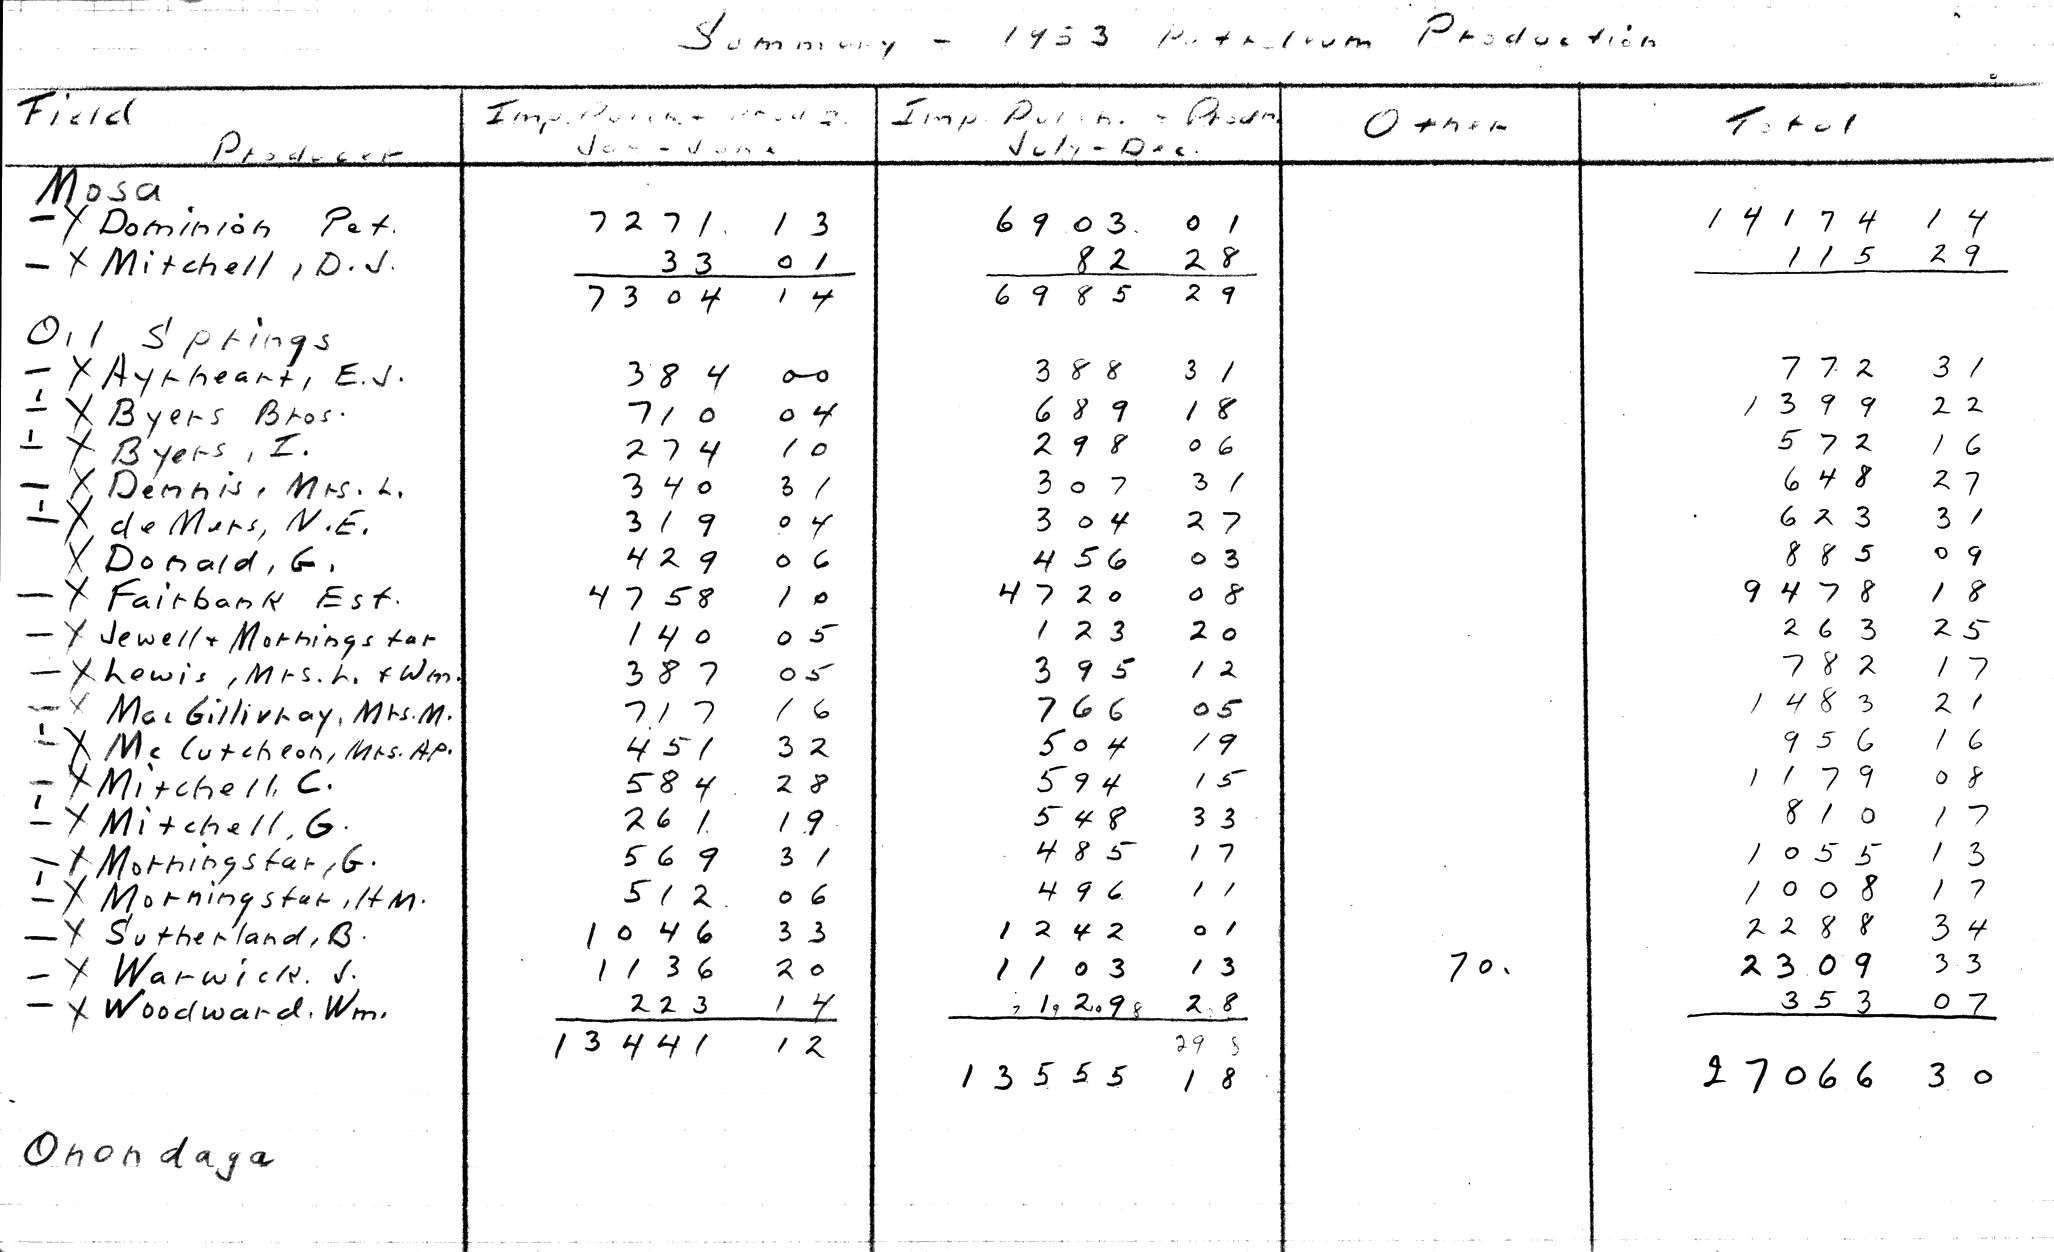 Summary - 1953 Petroleum Production
Field Producer Imp. Purch. + Prod'n. Jan - June Imp. Purch. + Prod'n. July - Dec. Other Total
Mosa
- X Dominion Pet. 7271 13 6903 01 14174 14
- X Mitchell, D.J. 33 01 82 28 115 29
7304 14 6985 29
Oil Springs
- X Ayrheart, E.J. 384 00 388 31 772 31
- X Byers Bros. 710 04 689 18 1399 22
- X Byers, I. 274 10 298 06 572 16
- X Dennis, Mrs. L. 340 31 307 31 648 27
- X de Mers, N.E. 319 04 304 27 623 31
X Donald, G. 429 06 456 03 885 09
- X Fairbank Est. 4758 10 4720 08 9478 18
- X Jewell + Morningstar 140 05 123 20 263 25
- X Lewis, Mrs. L. + Wm. 387 05 395 12 782 17
- X MacGillivray, Mrs. M. 717 16 766 05 1483 21
- X McCutcheon, Mrs. A.P. 451 32 504 19 956 16
- X Mitchell, C. 584 28 594 15 1179 08
- X Mitchell, G. 261 19 548 33 810 17
- X Morningstar, G. 569 31 485 17 1055 13
- X Morningstar, H.M. 512 06 496 11 1008 17
- X Sutherland, B. 1046 33 1242 01 2288 34
- X Warwick. J. 1136 20 1103 13 70. 2309 33
- X Woodward. Wm. 223 14 129 28 353 07
13441 12
13555 18 27066 30
Onondaga